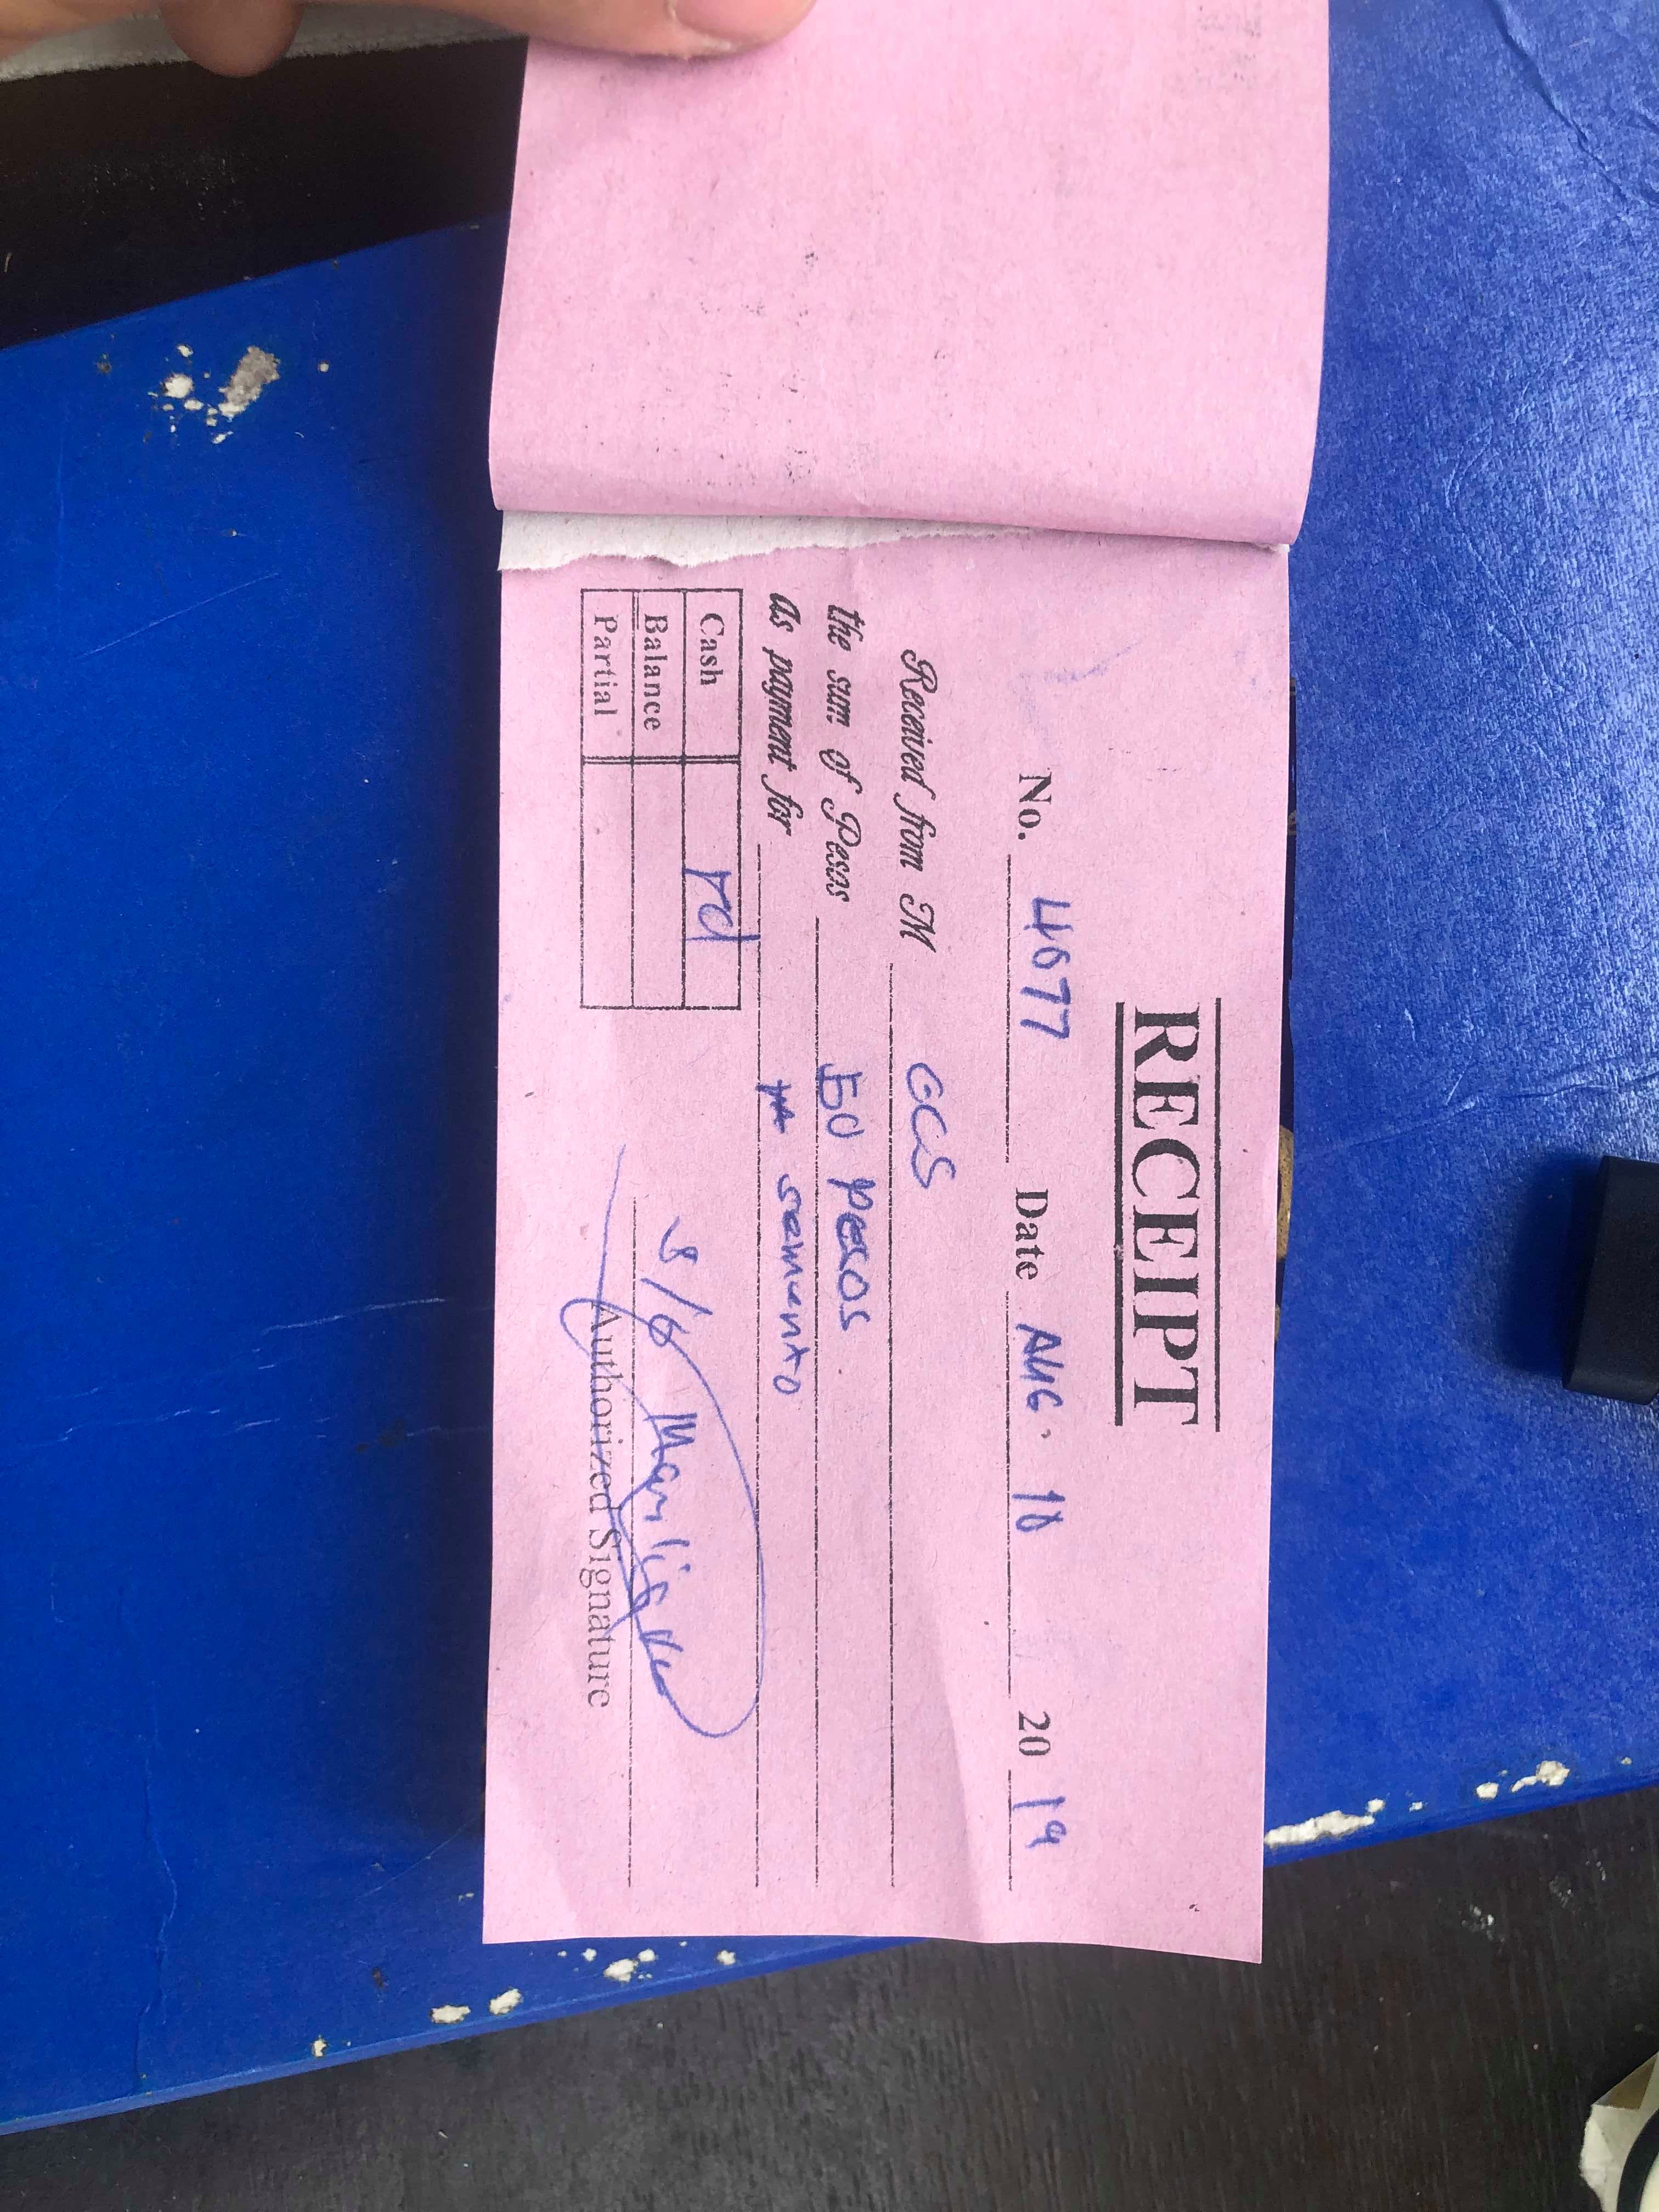 RECEIPT
No. 4677 Date AUG. 18 20 19
Received from M GCS
the sum of Pesos 50 pesos.
as payment for
Cash rd
Balance
Partial
S/G
Authorized Signature